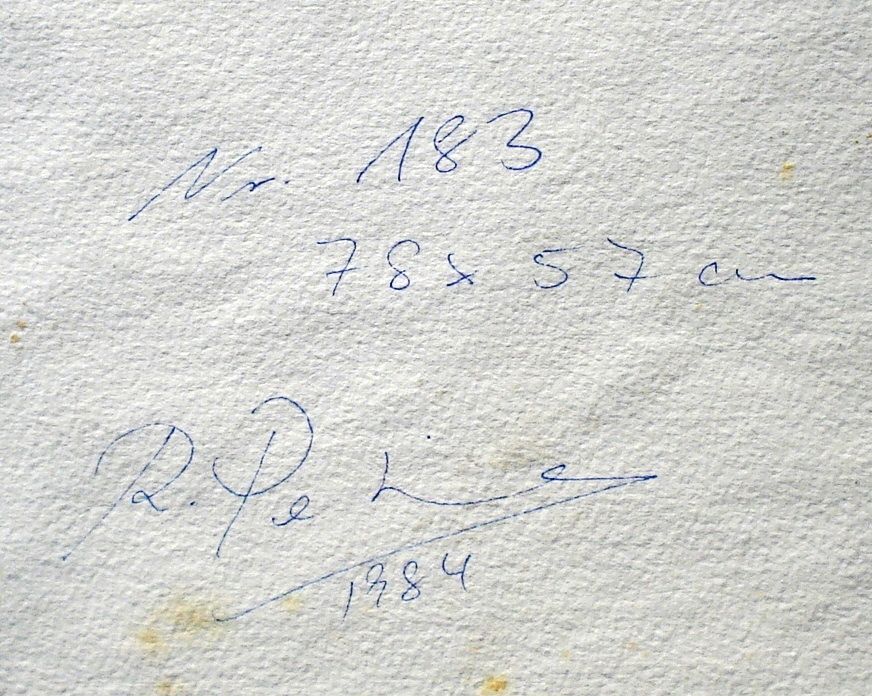 Nr. 183
78 x 57 cm
R. Pe
1984